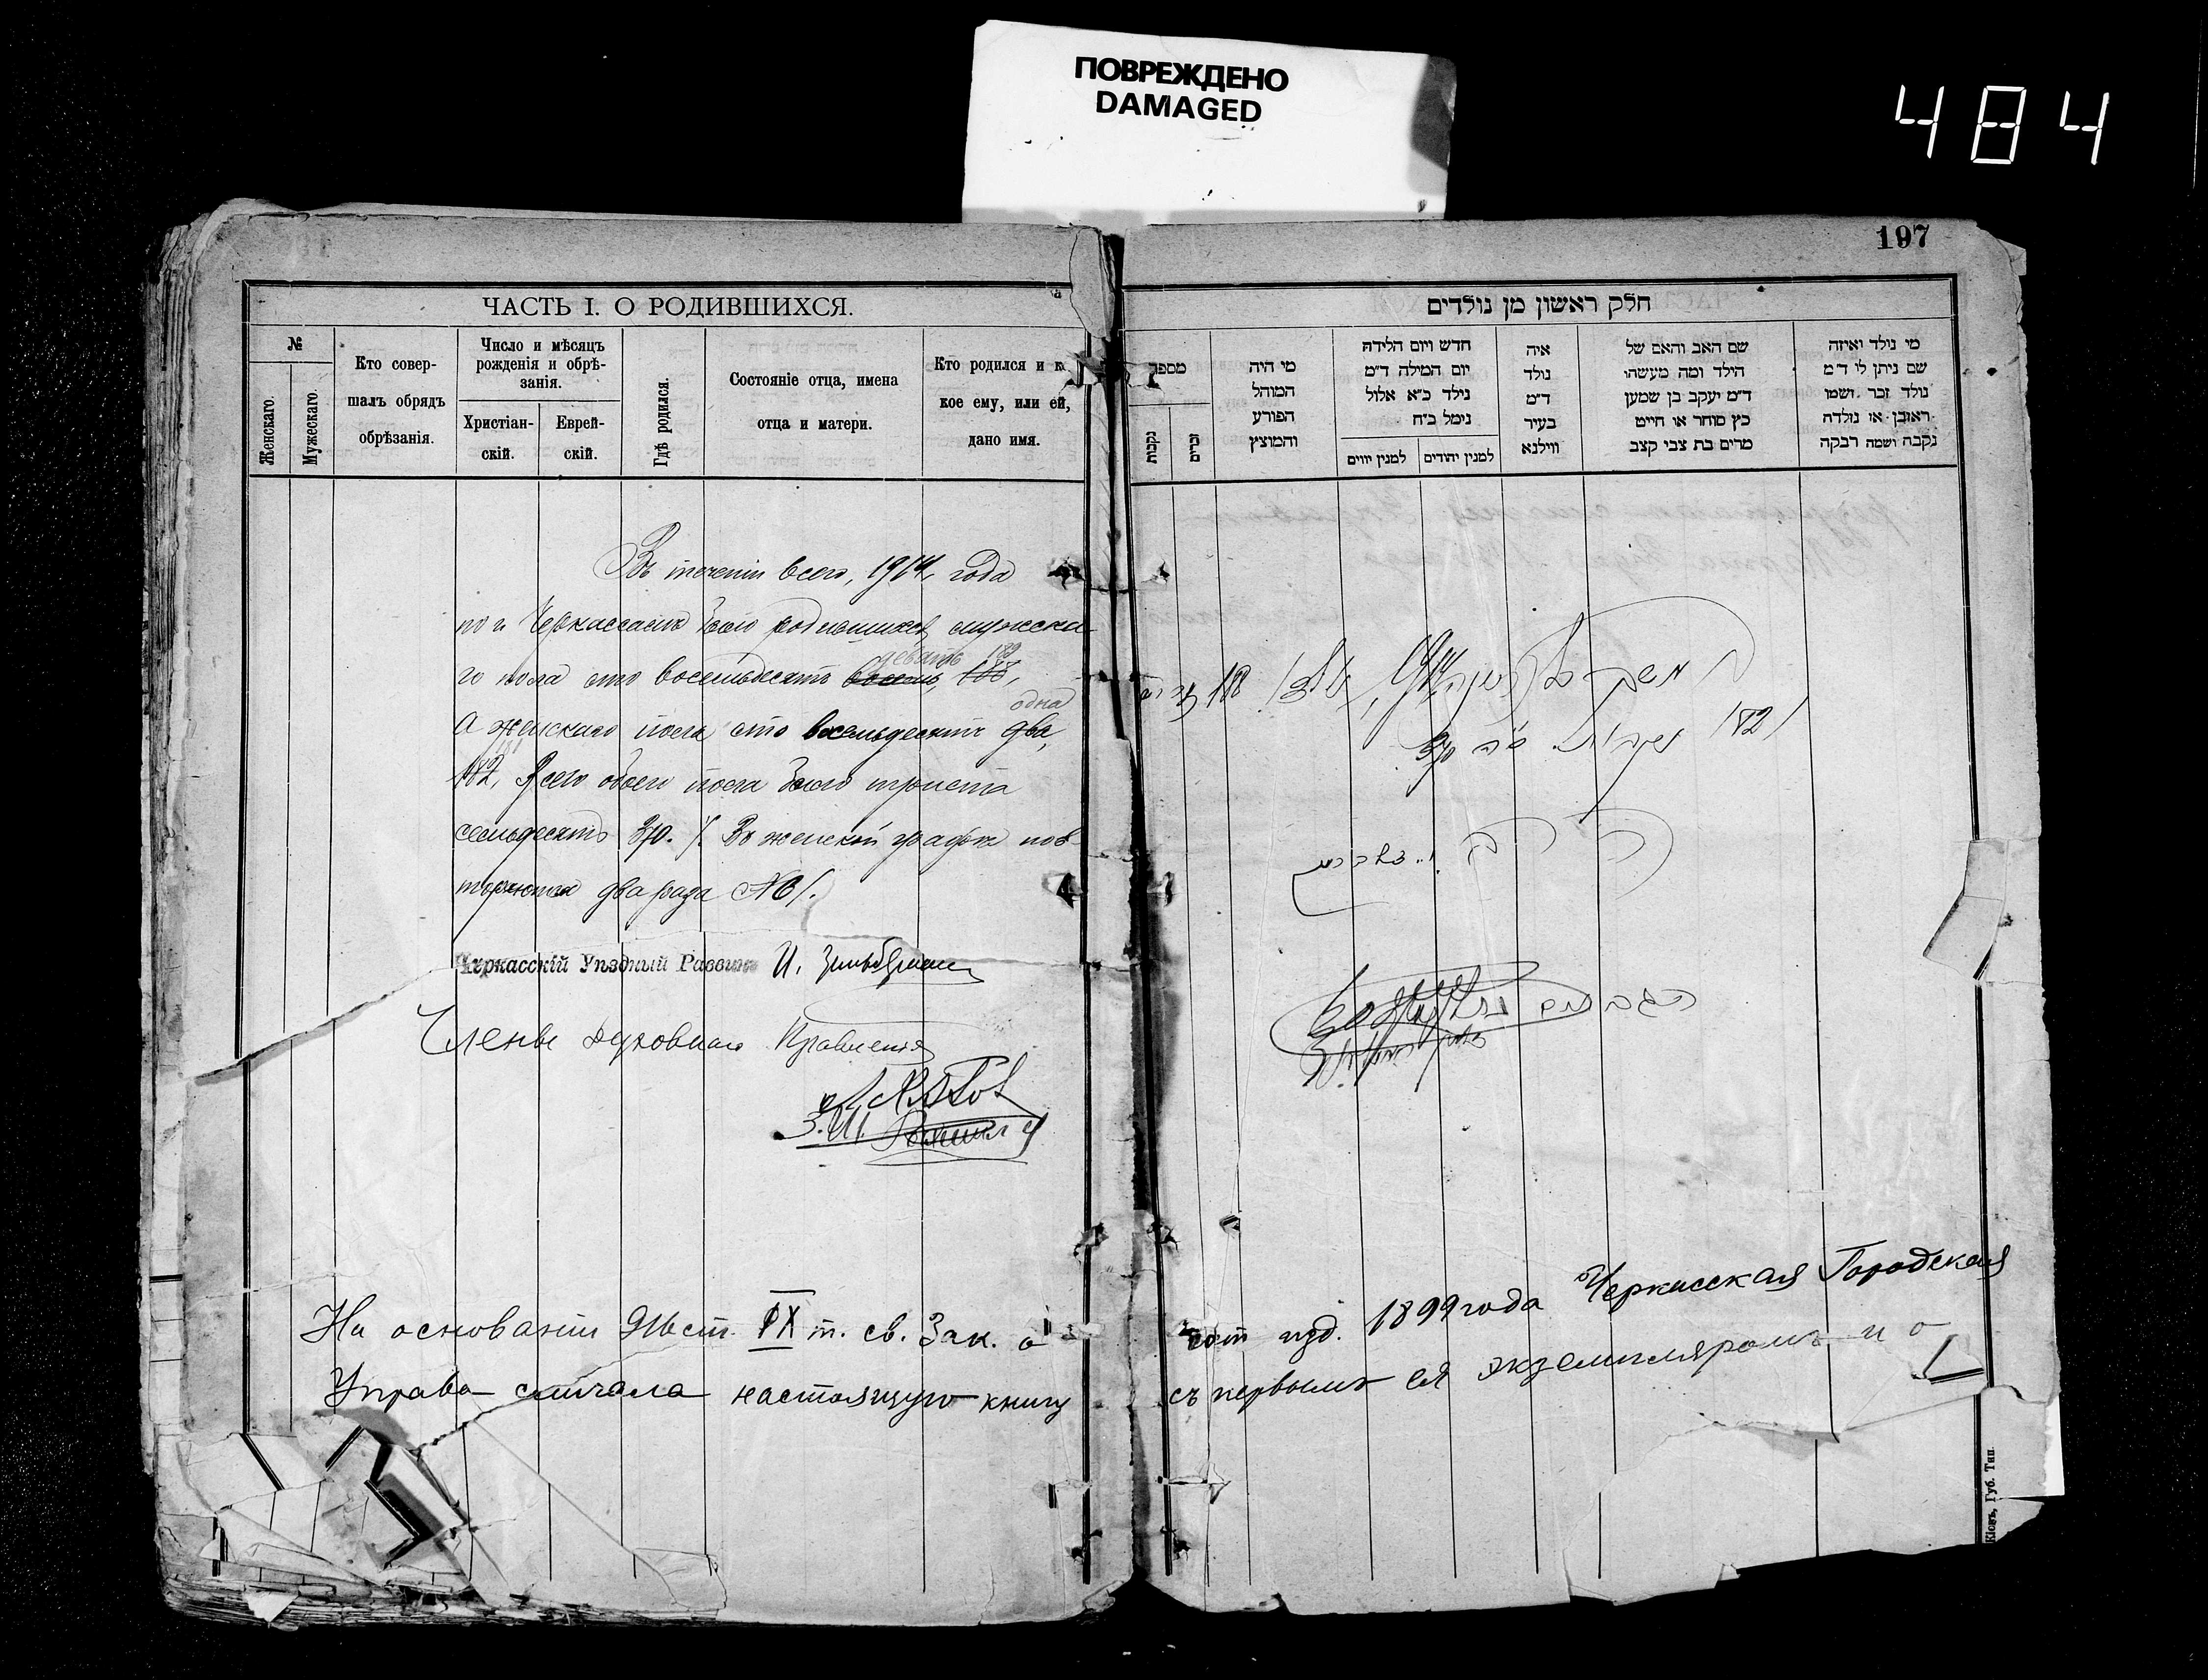 ПОВРЕЖДЕНО
DAMAGED
484
197
ЧАСТЬ I. О РОДИВШИХСЯ.
№
Женскаго.
Мужескаго.
Кто совер-
шалъ обрядъ
обрѣзанія.
Число и мѣсяцъ
рожденія и обрѣ-
занія.
Христіан-
скій.
Еврей-
скій.
Гдѣ родился.
Состояніе отца, имена
отца и матери.
Кто родился и к
кое ему, или ей,
дано имя.
Въ теченіи всего, 1914, года
по г. Черкассамъ было родившихся мужска-
девять 189
го пола сто восемьдесятъ восемь, 188,
одна
а женскаго пола сто восемьдесятъ два,
181
182, Всего обоего пола было триста
семьдесятъ 370. /. Въ женской графѣ пов-
торяются два раза №6/.
Черкасскій Уѣздный Раввинъ И. Зильберман
Члены Духовнаго Правленія
На основаніи ст. IX т. св. Зак. о сост изд. 1899 года Черкасская Городская
Управа сличала настоящую книгу съ первымъ ея экземпляромъ и о
חלק ראשון מן נולדים
מספר
נקבות
זכרים
מי היה
המוהל
הפורע
והמוצץ
חדש ויום הלידה
יום המילה ד״מ
נילד כ״א אלול
נימל כ״ח
למנין יווים
למנין יהודים
איה
נולד
ד״מ
בעיר
ווילנא
שם האב והאם של
הילד ומה מעשהו
ד״מ יעקב בן שמעון
כץ סוחר או חייט
מרים בת צבי קצב
מי נולד ואיזה
שם ניתן לו ד״מ
נולד זכר ושמו
ראובן או נולדה
נקבה ושמה רבקה
1914
188
182
370
Кіевъ, Губ. Тип.